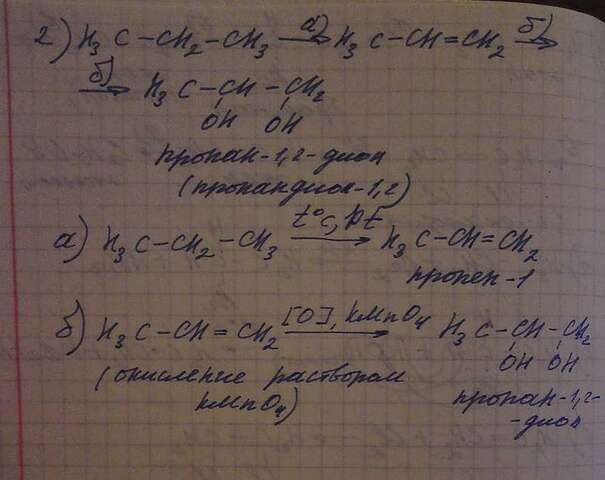 2) H₃C–CH₂–CH₃ —а)→ H₃C–CH=CH₂ —б)→
—б)→ H₃C–CH–CH₂
OH OH
пропан-1,2-диол
(пропандиол-1,2)
t°C, Pt
а) H₃C–CH₂–CH₃ ⟶ H₃C–CH=CH₂
пропен-1
б) H₃C–CH=CH₂ —[O], KMnO₄→ H₃C–CH–CH₂
OH OH
(окисление раствором
KMnO₄)
пропан-1,2-
-диол